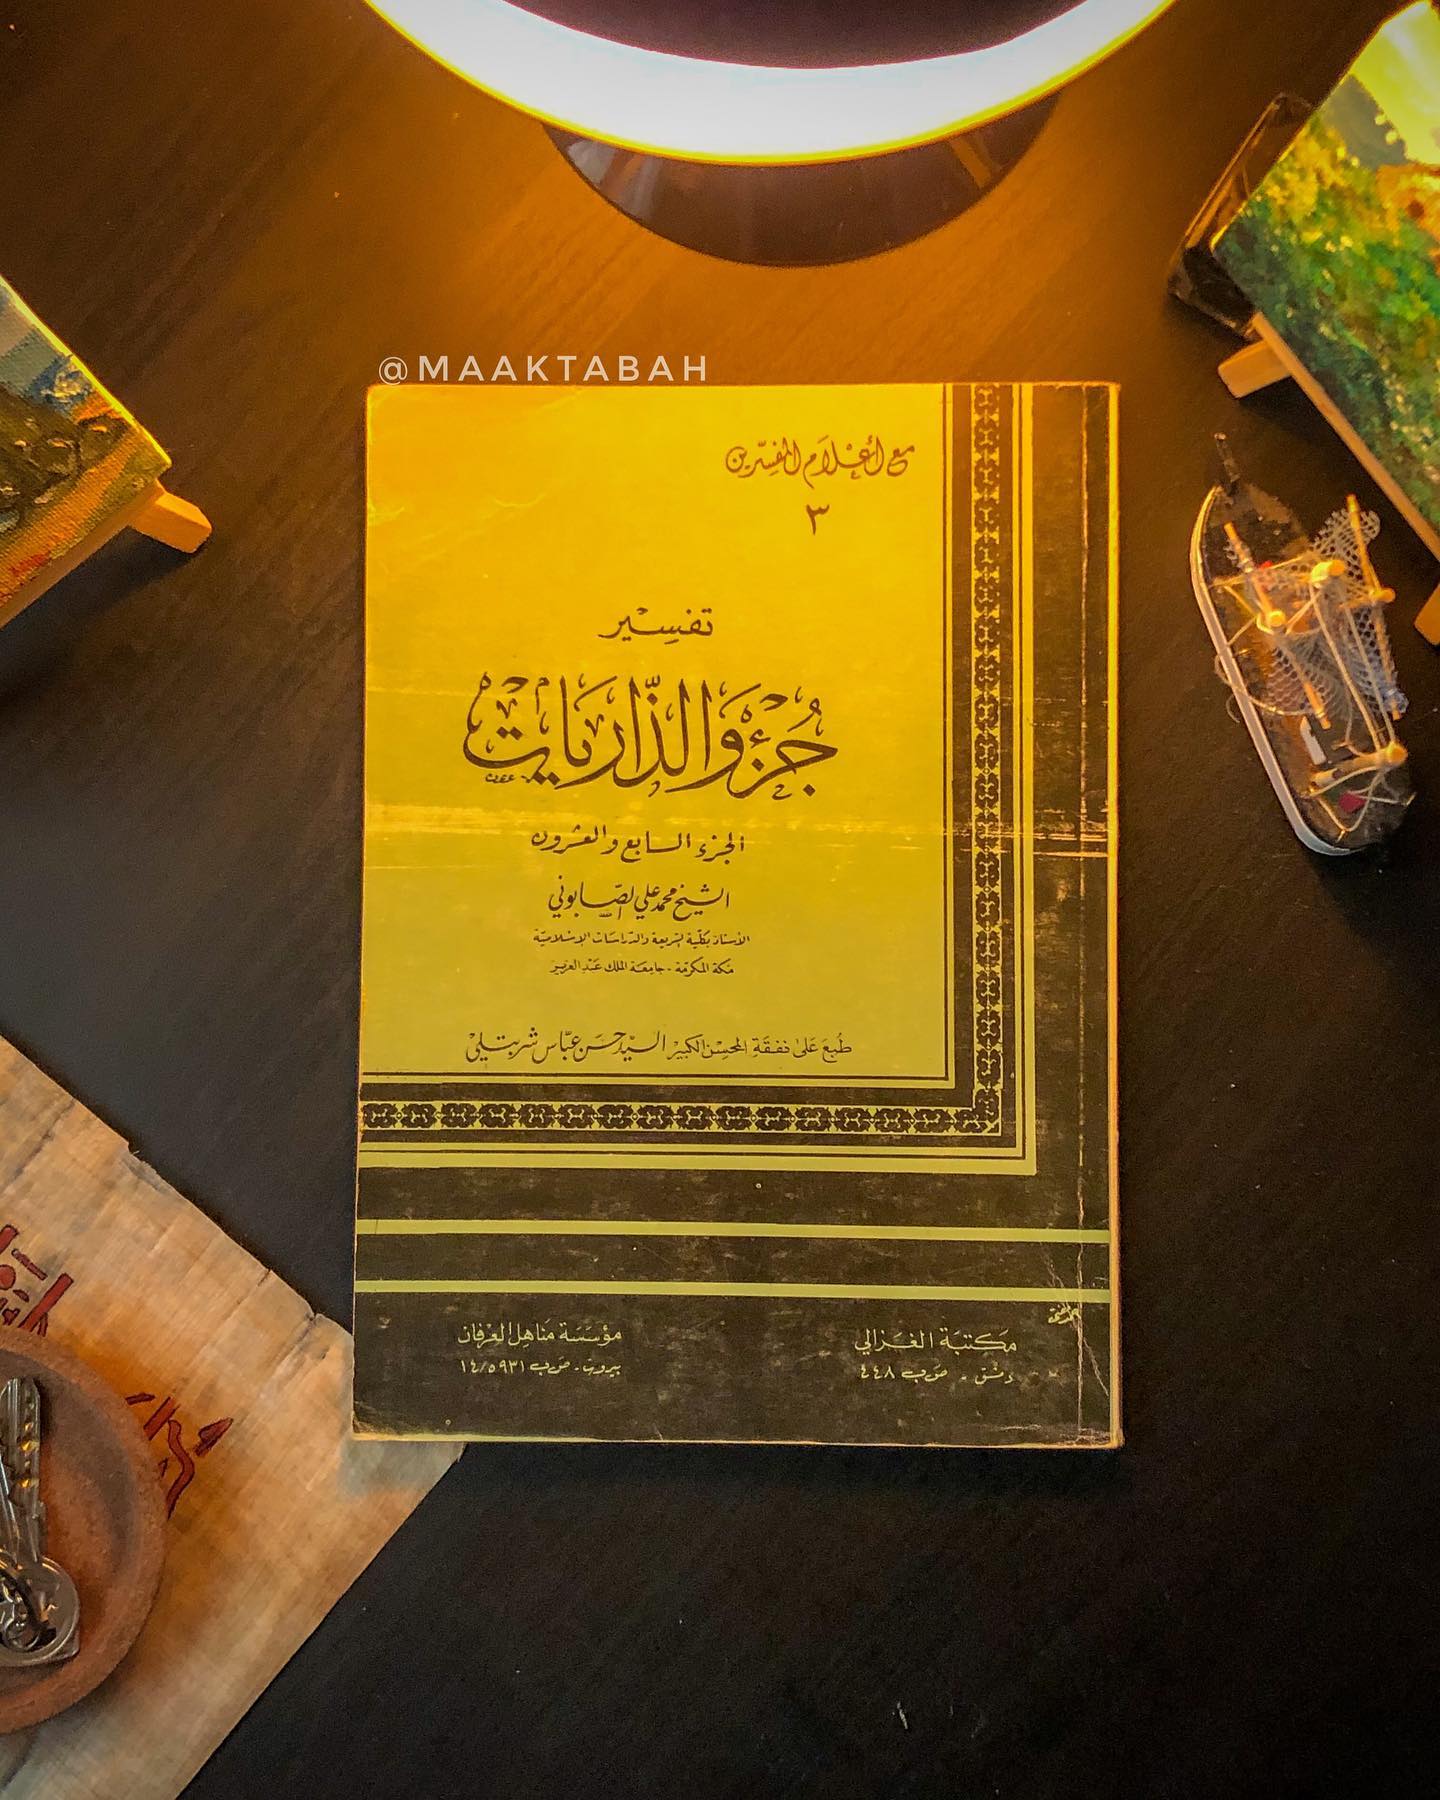 @MAAKTABAH
مع أعْلَام المفسِّرين
٣
تفسِيْر
جُزْء وَالذّارَيَات
الجزء السابع والعشرون
الشيخ محمد علي الصّابوني
الأستاذ بكلّية الشريعة والدراسات الإسْلاميّة
مَكة المكرّمة - جامعَة الملك عَبْد العزيز
طُبعَ عَلىٰ نفقَةِ المحسِن الكبيْر السيّد حسَن عبّاس شربتلي
مَكتبَة الغَزالي
دمشق - صَ ب ٤٤٨
مؤسّسَة مَناهِل العِرفان
بيروت - صَ ب ١٤/٥٩٣١